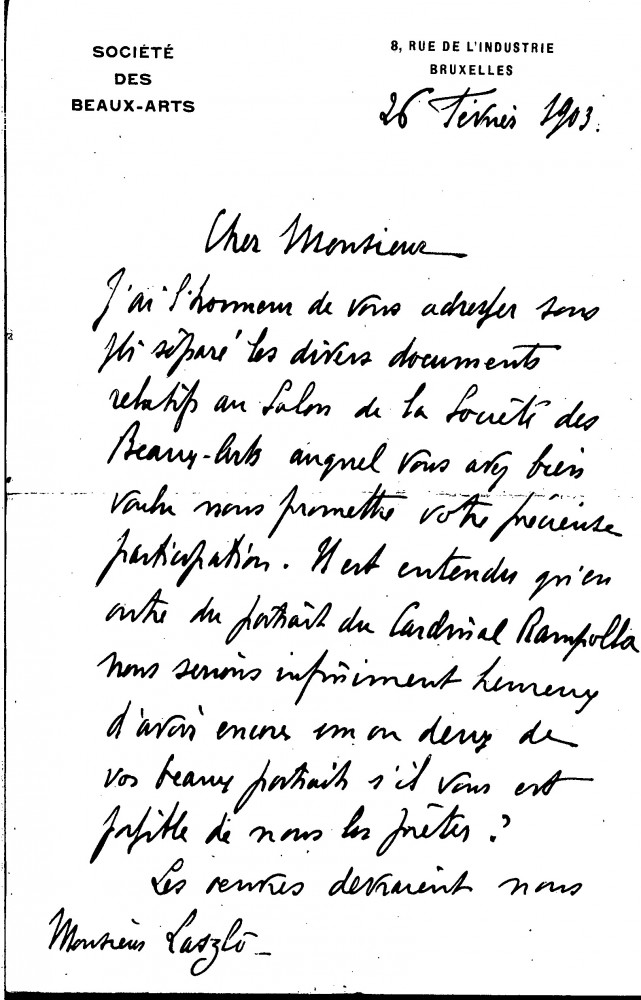 SOCIÉTÉ
DES
BEAUX-ARTS
8, RUE DE L'INDUSTRIE
BRUXELLES
26 Février 1903.
Cher Monsieur
J'ai l'honneur de vous adresser sous
pli séparé les divers documents
relatifs au Salon de la Société des
Beaux-Arts auquel vous avez bien
voulu nous promettre votre précieuse
participation. Il est entendu qu'en
outre du portrait du Cardinal Rampolla
nous serions infiniment heureux
d'avoir encore un ou deux de
vos beaux portraits s'il vous est
possible de nous les prêter ?
Les oeuvres devraient nous
Monsieur Laszlō